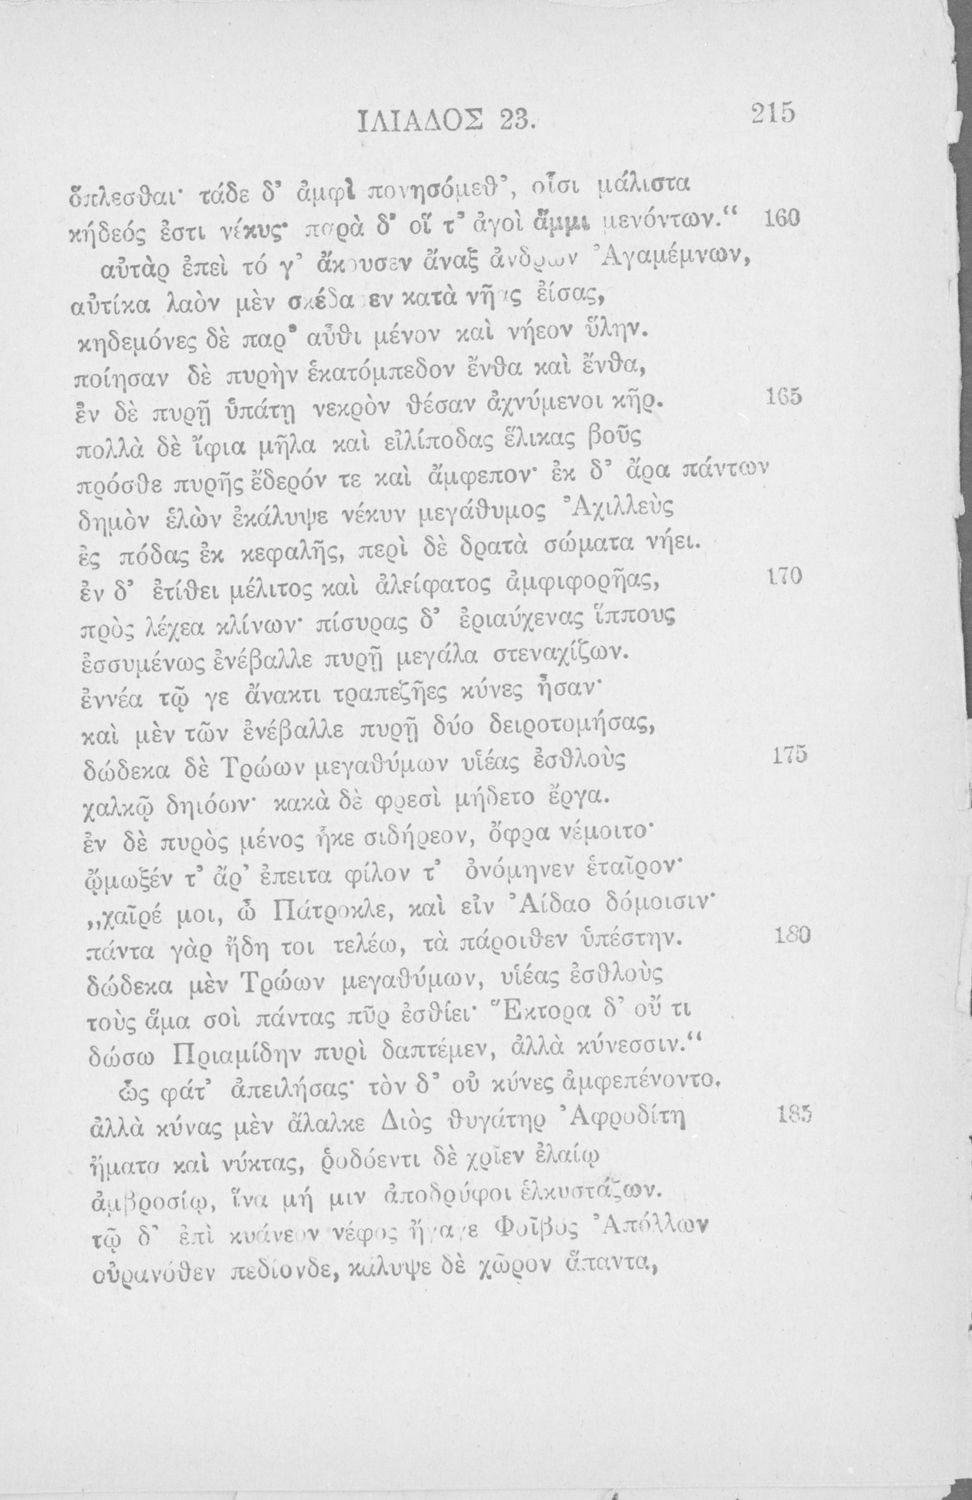 ΙΛΙΑΔΟΣ 23. 215
ὅπλεσθαι· τάδε δ’ ἀμφὶ πονησόμεθ’, οἷσι μάλιστα
κήδεός ἐστι νέκυς· παρὰ δ’ οἵ τ’ ἀγοὶ ἄμμι μενόντων.“ 160
αὐτὰρ ἐπεὶ τό γ’ ἄκουσεν ἄναξ ἀνδρῶν Ἀγαμέμνων,
αὐτίκα λαὸν μὲν σκέδασεν κατὰ νῆας ἐίσας,
κηδεμόνες δὲ παρ’ αὖθι μένον καὶ νήεον ὕλην.
ποίησαν δὲ πυρὴν ἑκατόμπεδον ἔνθα καὶ ἔνθα,
ἐν δὲ πυρῇ ὑπάτῃ νεκρὸν θέσαν ἀχνύμενοι κῆρ. 165
πολλὰ δὲ ἴφια μῆλα καὶ εἰλίποδας ἕλικας βοῦς
πρόσθε πυρῆς ἔδερόν τε καὶ ἄμφεπον· ἐκ δ’ ἄρα πάντων
δημὸν ἑλὼν ἐκάλυψε νέκυν μεγάθυμος Ἀχιλλεὺς
ἐς πόδας ἐκ κεφαλῆς, περὶ δὲ δρατὰ σώματα νήει.
ἐν δ’ ἐτίθει μέλιτος καὶ ἀλείφατος ἀμφιφορῆας, 170
πρὸς λέχεα κλίνων· πίσυρας δ’ ἐριαύχενας ἵππους
ἐσσυμένως ἐνέβαλλε πυρῇ μεγάλα στεναχίζων.
ἐννέα τῷ γε ἄνακτι τραπεζῆες κύνες ἦσαν·
καὶ μὲν τῶν ἐνέβαλλε πυρῇ δύο δειροτομήσας,
δώδεκα δὲ Τρώων μεγαθύμων υἱέας ἐσθλοὺς 175
χαλκῷ δηιόων· κακὰ δὲ φρεσὶ μήδετο ἔργα.
ἐν δὲ πυρὸς μένος ἧκε σιδήρεον, ὄφρα νέμοιτο·
ᾤμωξέν τ’ ἄρ’ ἔπειτα φίλον τ’ ὀνόμηνεν ἑταῖρον·
„χαῖρέ μοι, ὦ Πάτροκλε, καὶ εἰν Ἀίδαο δόμοισιν·
πάντα γὰρ ἤδη τοι τελέω, τὰ πάροιθεν ὑπέστην. 180
δώδεκα μὲν Τρώων μεγαθύμων, υἱέας ἐσθλοὺς
τοὺς ἅμα σοὶ πάντας πῦρ ἐσθίει· Ἕκτορα δ’ οὔ τι
δώσω Πριαμίδην πυρὶ δαπτέμεν, ἀλλὰ κύνεσσιν.“
ὣς φάτ’ ἀπειλήσας· τὸν δ’ οὐ κύνες ἀμφεπένοντο,
ἀλλὰ κύνας μὲν ἄλαλκε Διὸς θυγάτηρ Ἀφροδίτη 185
ἤματα καὶ νύκτας, ῥοδόεντι δὲ χρῖεν ἐλαίῳ
ἀμβροσίῳ, ἵνα μή μιν ἀποδρύφοι ἑλκυστάζων.
τῷ δ’ ἐπὶ κυάνεον νέφος ἤγαγε Φοῖβος Ἀπόλλων
οὐρανόθεν πεδίονδε, κάλυψε δὲ χῶρον ἅπαντα,